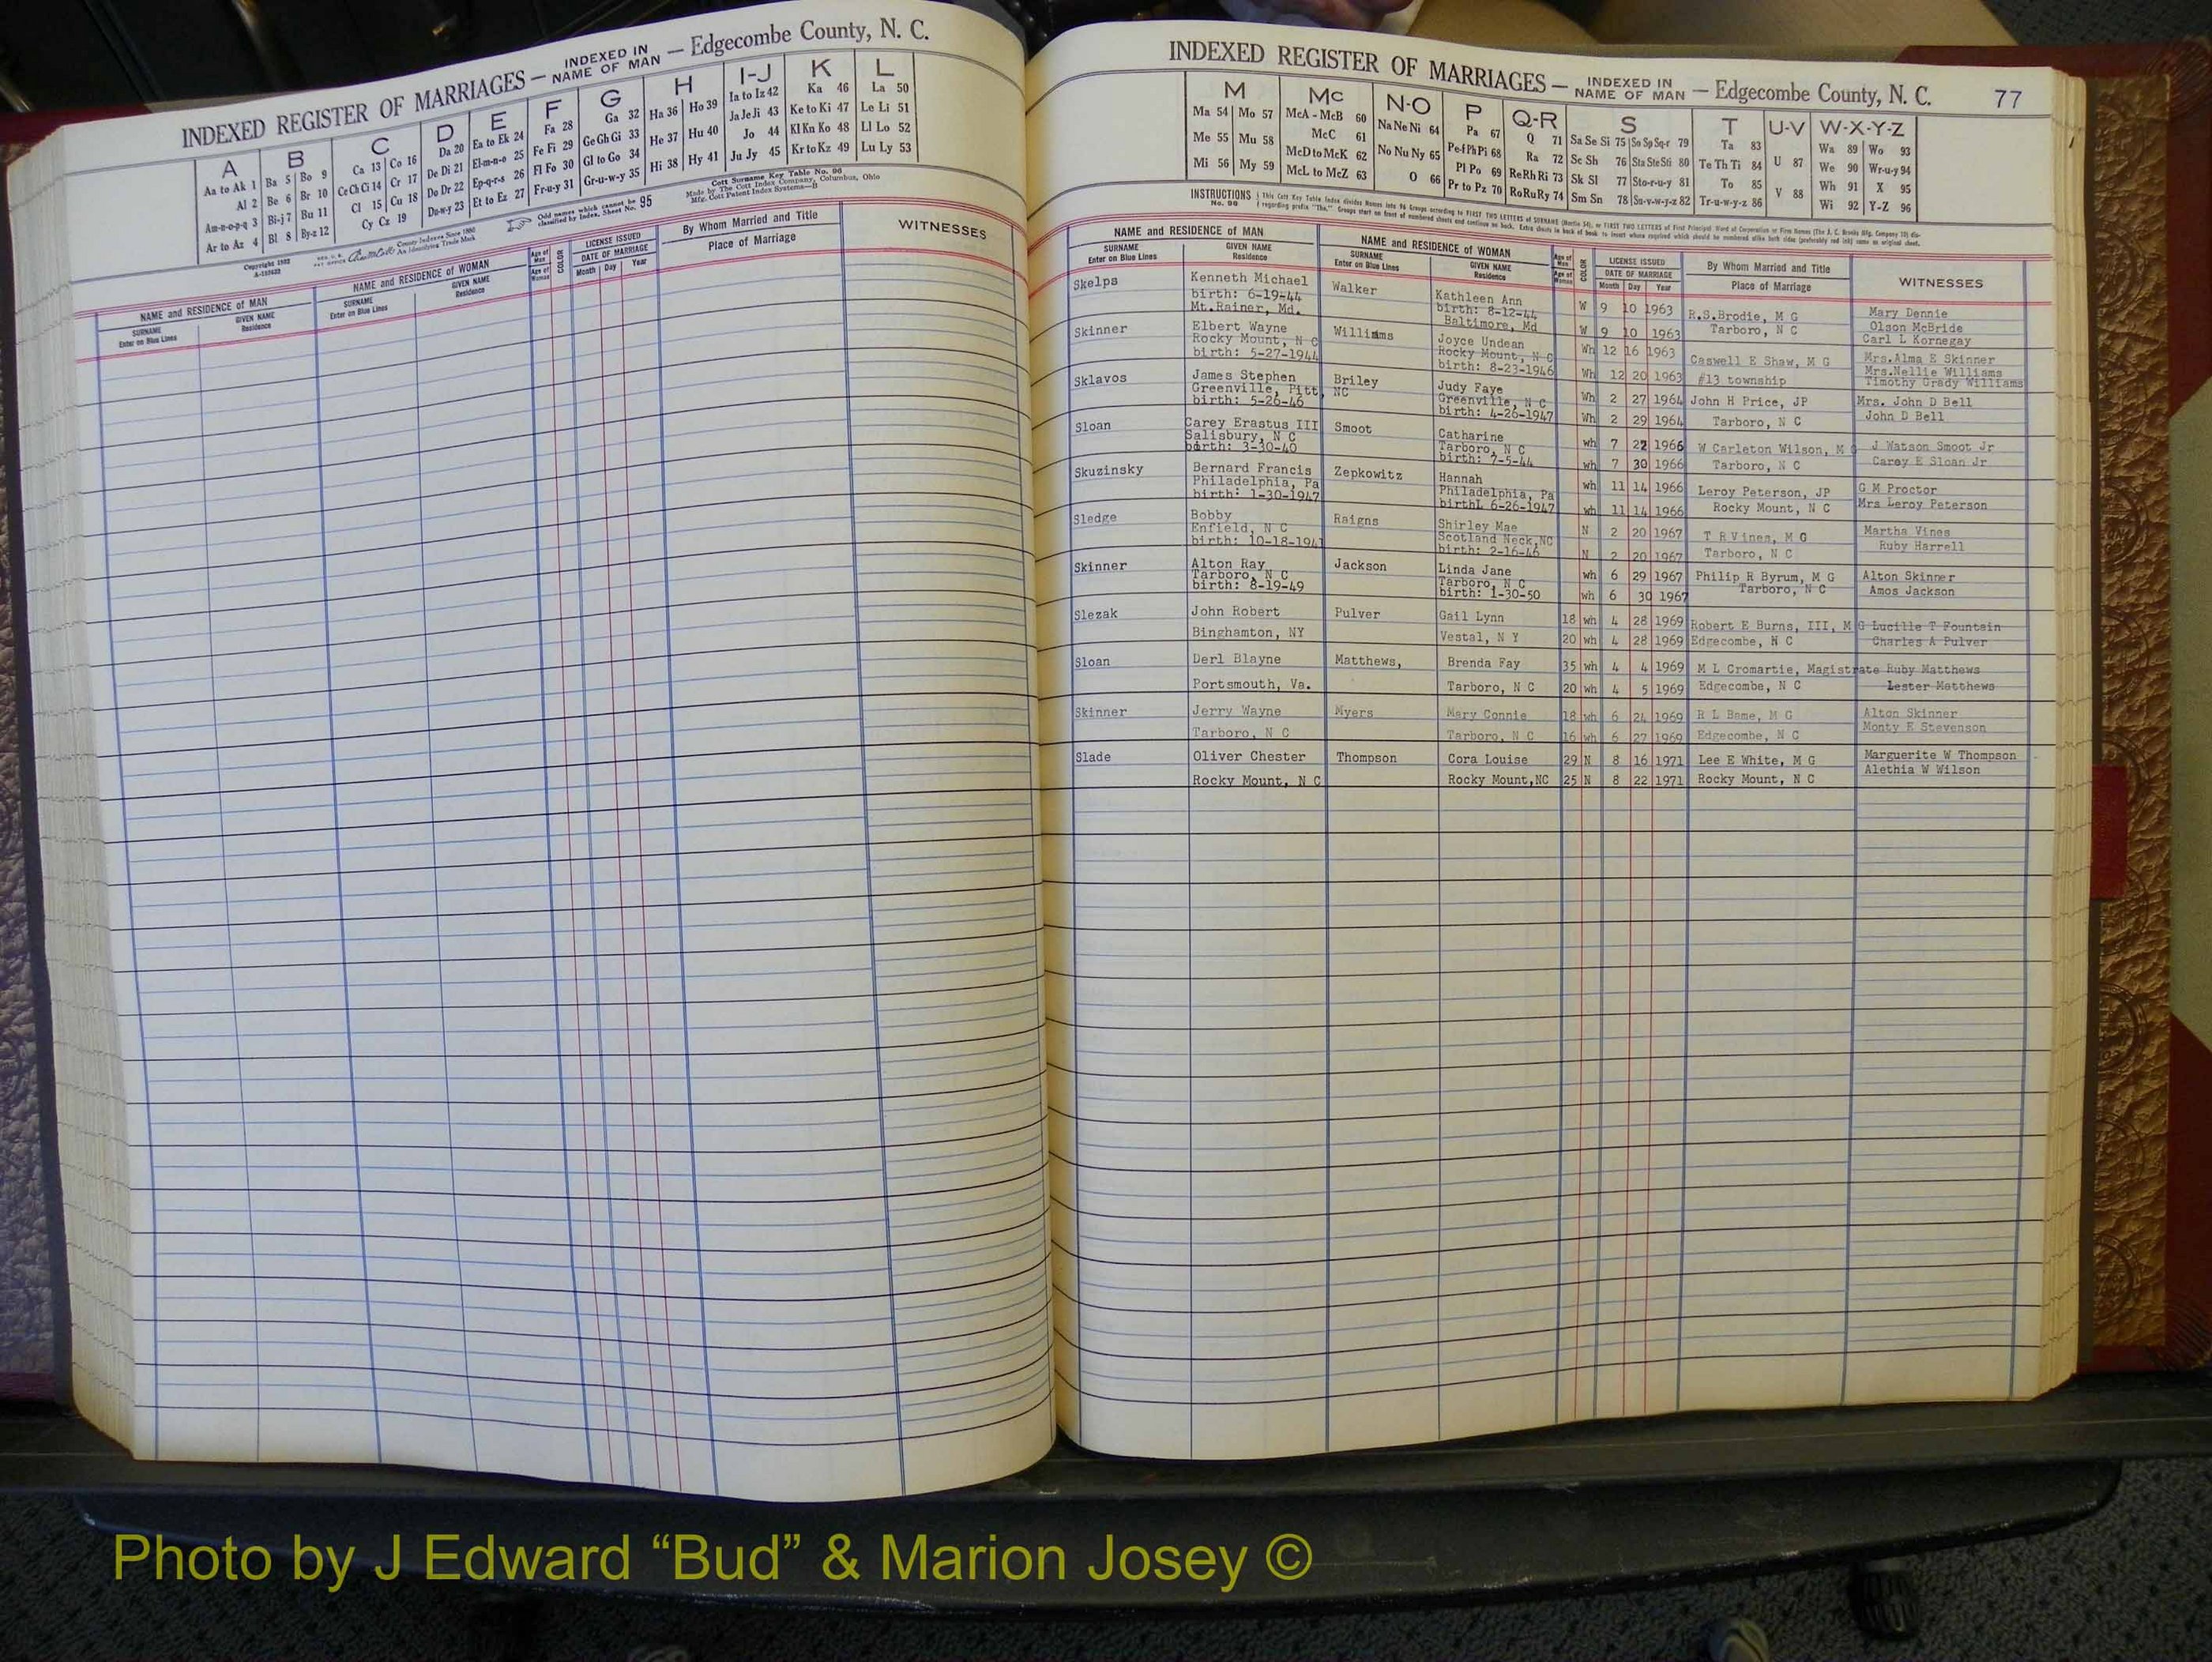 INDEXED REGISTER OF MARRIAGES — INDEXED IN NAME OF MAN — Edgecombe County, N. C.
A B C D E F G H I-J K L
Aa to Ak 1 Ba 5 Bo 9 Ca 13 Co 16 Da 20 Ea to Ek 24 Fa 28 Ga 32 Ha 36 Ho 39 Ia to Iz 42 Ka 46 La 50
Al 2 Be 6 Br 10 Ce Ch Ci 14 Cr 17 De Di 21 El-m-n-o 25 Fe Fi 29 Ge Gh Gi 33 He 37 Hu 40 Ja Je Ji 43 Ke to Ki 47 Le Li 51
Am-n-o-p-q 3 Bi-j 7 Bu 11 Cl 15 Cu 18 Do Dr 22 Ep-q-r-s 26 Fl Fo 30 Gl to Go 34 Hi 38 Hy 41 Jo 44 Kl Kn Ko 48 Ll Lo 52
Ar to Az 4 Bl 8 By-z 12 Cy Cz 19 Du-w-y 23 Et to Ez 27 Fr-u-y 31 Gr-u-w-y 35 Ju Jy 45 Kr to Kz 49 Lu Ly 53
Copyright 1932
County Indexes Since 1880
An Identifying Trade Mark
Odd names which cannot be classified by Index, Sheet No. 95
Cott Surname Key Table No. 96
Made by The Cott Index Company, Columbus, Ohio
Mfg. Cott Patent Index Systems—B
NAME and RESIDENCE of MAN NAME and RESIDENCE OF WOMAN Age of Man Age of Woman COLOR LICENSE ISSUED By Whom Married and Title WITNESSES
SURNAME GIVEN NAME SURNAME GIVEN NAME DATE OF MARRIAGE Place of Marriage
Enter on Blue Lines Residence Enter on Blue Lines Residence Month Day Year
INDEXED REGISTER OF MARRIAGES — INDEXED IN NAME OF MAN — Edgecombe County, N. C. 77
M Mc N-O P Q-R S T U-V W-X-Y-Z
Ma 54 Mo 57 McA - McB 60 Na Ne Ni 64 Pa 67 Q 71 Sa Se Si 75 So Sp Sq-r 79 Ta 83 U 87 Wa 89 Wo 93
Me 55 Mu 58 McC 61 No Nu Ny 65 Pe-f Ph Pi 68 Ra 72 Sc Sh 76 Sta Ste Sti 80 Te Th Ti 84 V 88 We 90 Wr-u-y 94
Mi 56 My 59 McD to McK 62 O 66 Pl Po 69 Re Rh Ri 73 Sk Sl 77 Sto-r-u-y 81 To 85 Wh 91 X 95
McL to McZ 63 Pr to Pz 70 Ro Ru Ry 74 Sm Sn 78 Su-v-w-y-z 82 Tr-u-w-y-z 86 Wi 92 Y-Z 96
INSTRUCTIONS
No. 96
NAME and RESIDENCE OF MAN NAME and RESIDENCE OF WOMAN Age of Man Age of Woman COLOR LICENSE ISSUED By Whom Married and Title WITNESSES
SURNAME GIVEN NAME SURNAME GIVEN NAME DATE OF MARRIAGE Place of Marriage
Enter on Blue Lines Residence Enter on Blue Lines Residence Month Day Year
Skelps Kenneth Michael Walker Kathleen Ann W 9 10 1963 R.S.Brodie, M G Mary Dennie
birth: 6-19-44 birth: 8-12-44 Olson McBride
Mt.Rainer, Md. Baltimore, Md W 9 10 1963 Tarboro, N C Carl L Kornegay
Skinner Elbert Wayne Williams Joyce Undean Wh 12 16 1963 Caswell E Shaw, M G Mrs.Alma E Skinner
Rocky Mount, N C Rocky Mount, N C Mrs.Nellie Williams
birth: 5-27-1944 birth: 8-23-1946 Wh 12 20 1963 #13 township Timothy Grady Williams
Sklavos James Stephen Briley Judy Faye Wh 2 27 1964 John H Price, JP Mrs. John D Bell
Greenville, Pitt, NC Greenville, N C
birth: 5-26-46 birth: 4-26-1947 Wh 2 29 1964 Tarboro, N C John D Bell
Sloan Carey Erastus III Smoot Catharine wh 7 22 1966 W Carleton Wilson, M G J Watson Smoot Jr
Salisbury, N C Tarboro, N C
birth: 3-30-40 birth: 7-5-44 wh 7 30 1966 Tarboro, N C Carey E Sloan Jr
Skuzinsky Bernard Francis Zepkowitz Hannah wh 11 14 1966 Leroy Peterson, JP G M Proctor
Philadelphia, Pa Philadelphia, Pa
birth: 1-30-1947 birthL 6-26-1947 wh 11 14 1966 Rocky Mount, N C Mrs Leroy Peterson
Sledge Bobby Raigns Shirley Mae N 2 20 1967 T R Vines, M G Martha Vines
Enfield, N C Scotland Neck,NC
birth: 10-18-1941 birth: 2-16-46 N 2 20 1967 Tarboro, N C Ruby Harrell
Skinner Alton Ray Jackson Linda Jane wh 6 29 1967 Philip R Byrum, M G Alton Skinner
Tarboro, N C Tarboro, N C
birth: 8-19-49 birth: 1-30-50 wh 6 30 1967 Tarboro, N C Amos Jackson
Slezak John Robert Pulver Gail Lynn 18 wh 4 28 1969 Robert E Burns, III, M G Lucille T Fountain
Binghamton, NY Vestal, N Y 20 wh 4 28 1969 Edgecombe, N C Charles A Pulver
Sloan Derl Blayne Matthews, Brenda Fay 35 wh 4 4 1969 M L Cromartie, Magistrate Ruby Matthews
Portsmouth, Va. Tarboro, N C 20 wh 4 5 1969 Edgecombe, N C Lester Matthews
Skinner Jerry Wayne Myers Mary Connie 18 wh 6 24 1969 R L Bame, M G Alton Skinner
Tarboro, N C Tarboro, N C 16 wh 6 27 1969 Edgecombe, N C Monty E Stevenson
Slade Oliver Chester Thompson Cora Louise 29 N 8 16 1971 Lee E White, M G Marguerite W Thompson
Rocky Mount, N C Rocky Mount,NC 25 N 8 22 1971 Rocky Mount, N C Alethia W Wilson
Photo by J Edward “Bud” & Marion Josey ©